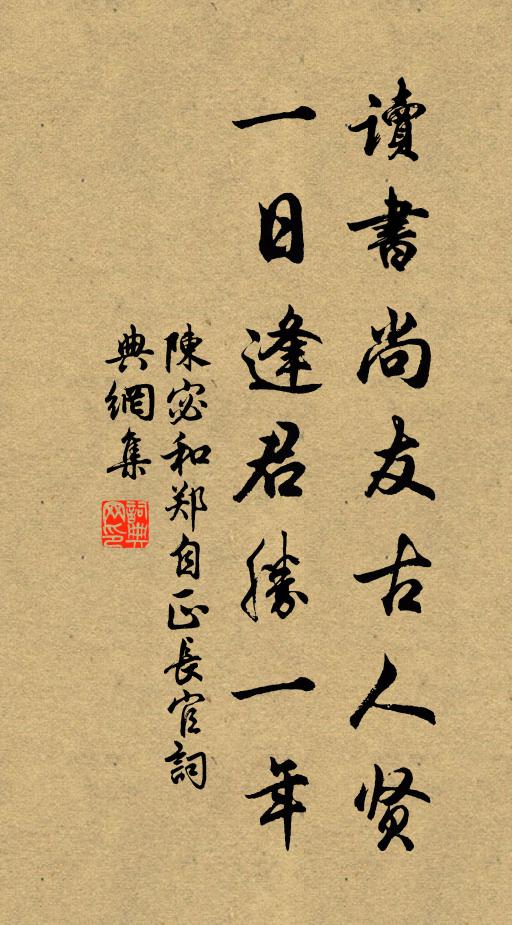 讀書尚友古人贤
一日逢君勝一年
陳宓和郑自正長官詞
典網集
詞典网印